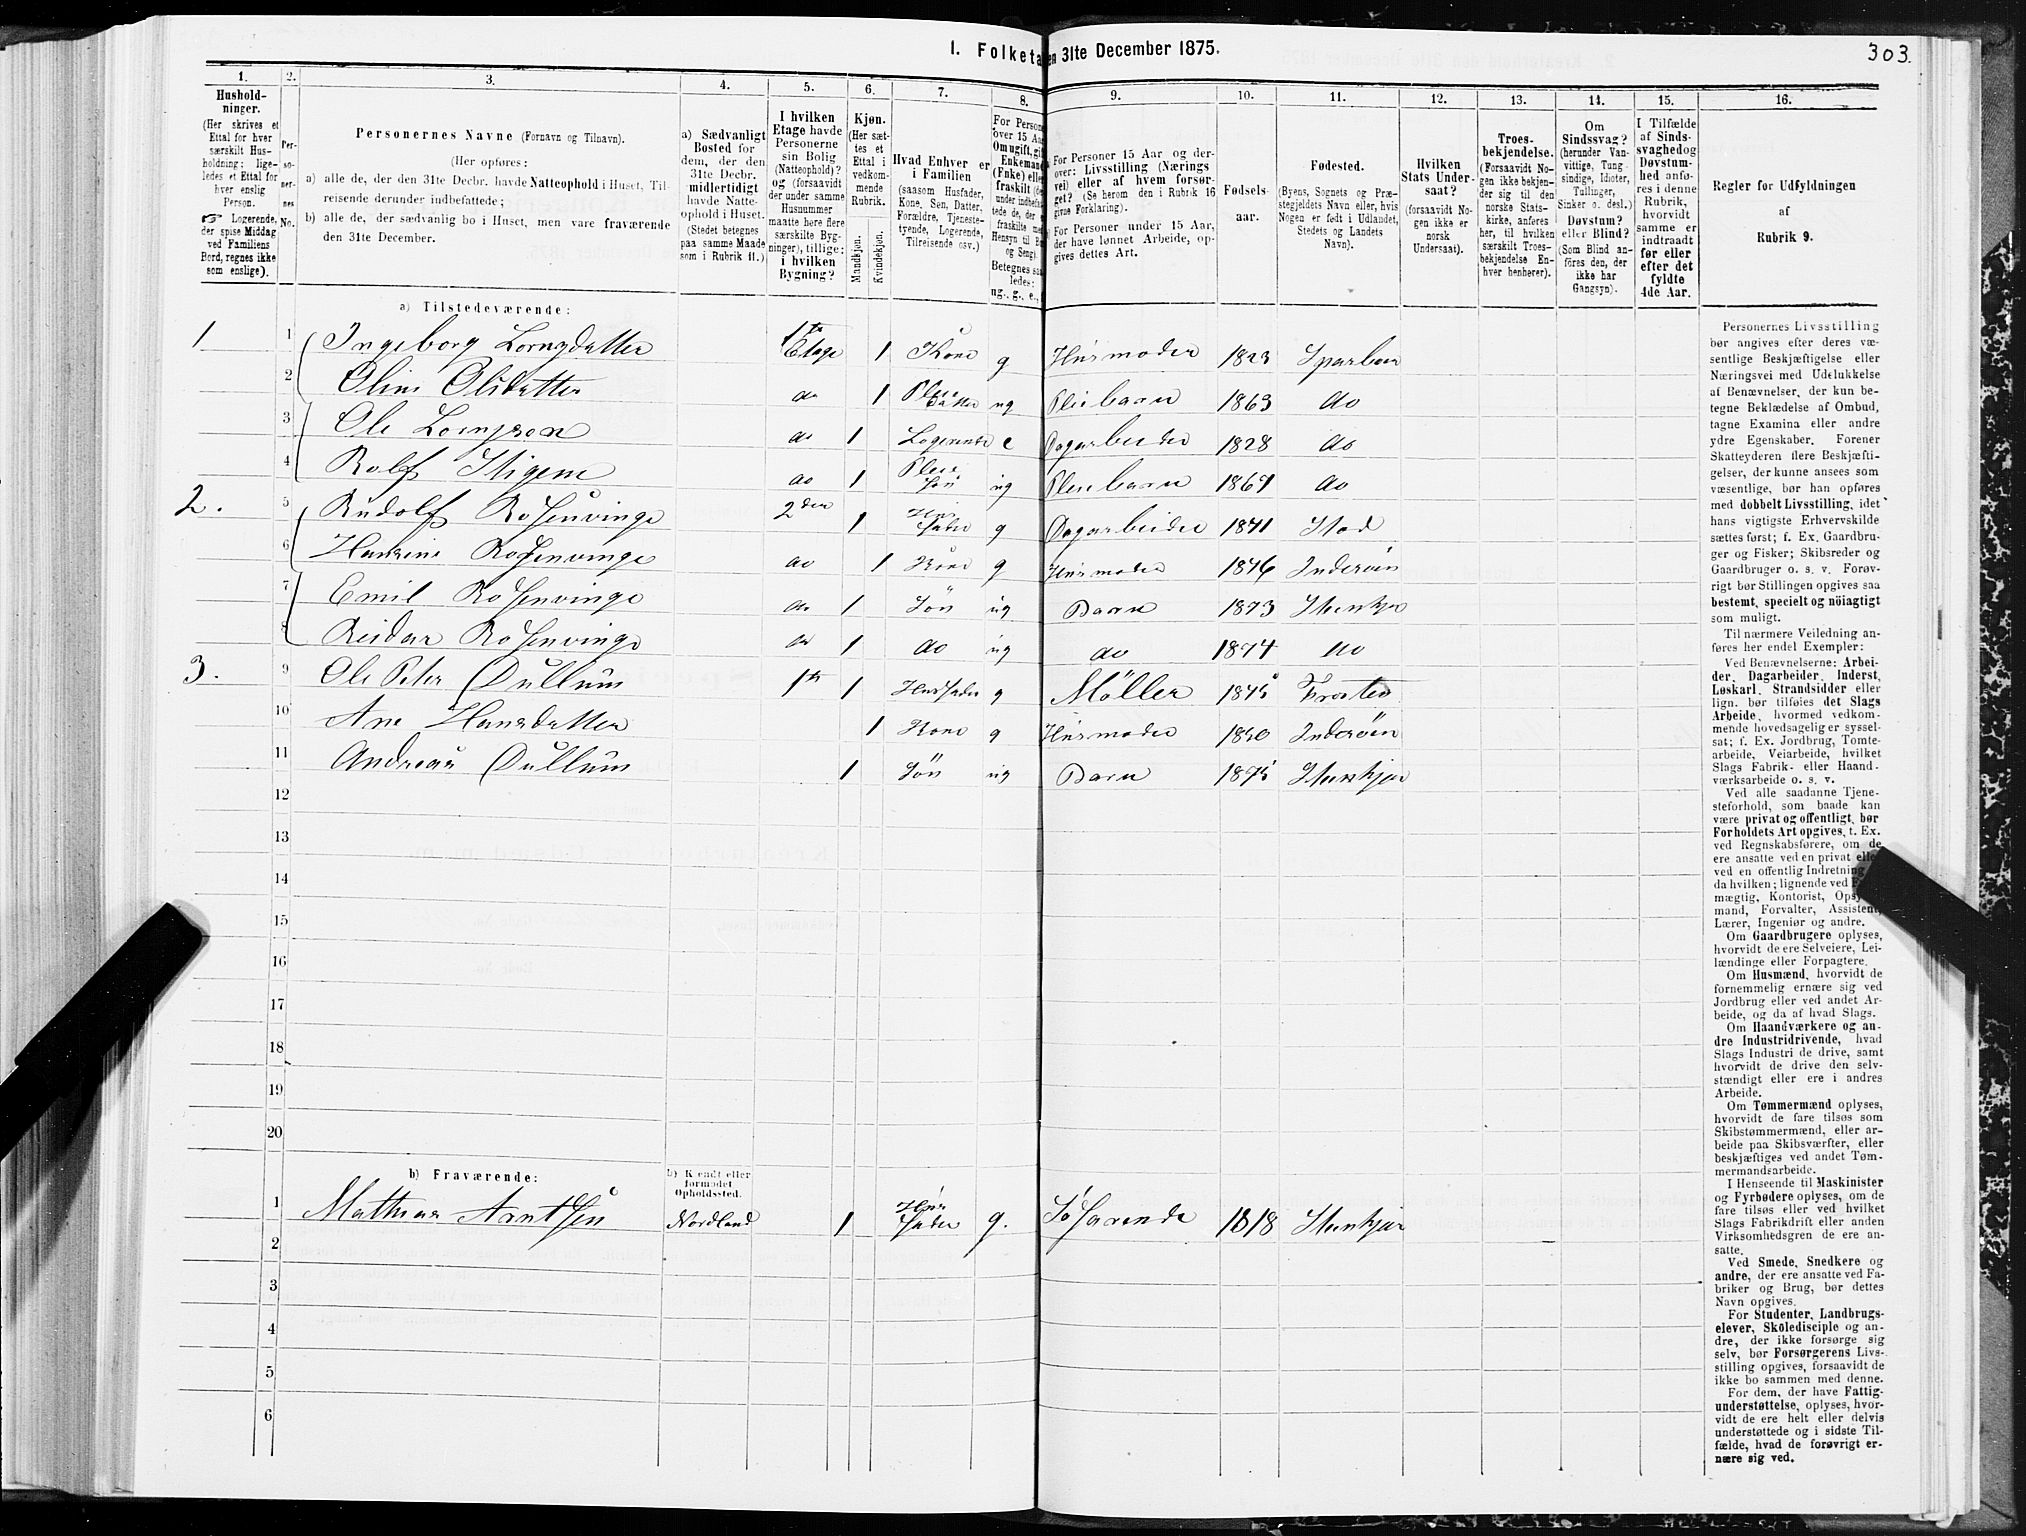 303.
1. Folketa en 31te December 1875.
1. 2. 3. 4. 5. 6. 7. 8. 9. 10. 11. 12. 13. 14. 15. 16.
Hushold-
ninger.
(Her skrives et
Ettal for hver
særskilt Hus-
holdning; lige-
ledes et Ettal for
hver enslig
Person.
Logerende,
der spise Middag
ved Familiens
Bord, regnes ikke
som enslige).
Per-
so-
ner-
nes
No.
Personernes Navne (Fornavn og Tilnavn).
(Her opføres:
a) alle de, der den 31te Decbr. havde Natteophold i Huset, Til-
reisende derunder indbefattede;
b) alle de, der sædvanlig bo i Huset, men vare fraværende
den 31te December.
a) Sædvanligt
Bosted for
dem, der den
31te Decbr.
midlertidigt
havde Natte-
ophold i Huset.
(Stedet betegnes
paa samme Maade
som i Rubrik 11.)
I hvilken
Etage havde
Personerne
sin Bolig
(Natteophold)?
og (forsaavidt
der under samme
Husnummer
maatte høre flere
særskilte Byg-
ninger), tillige:
i hvilken
Bygning?
Kjøn.
(Her sæt-
tes et
Ettal i
vedkom-
mende
Rubrik.
Mandkjøn.
Kvindekjøn.
Hvad Enhver er
i Familien
(saasom Husfader,
Kone, Søn, Datter,
Forældre, Tjeneste-
tyende, Logerende,
Tilreisende osv.)
For Person
over 15 Aa
Om ugift, gi
Enkemand
(Enke) elle
fraskilt (de
under indbefat
tede de, der
fraskilte me
Hensyn til B
og Seng)
Betegnes saa
ledes:
ug., g., e.,
For Personer 15 Aar og der-
over: Livsstilling (Nærings
vei) eller af hvem forsør-
get? (Se herom den i Rubrik 16
givne Forklaring).
For Personer under 15 Aar,
der have lønnet Arbeide, op-
gives dettes Art.
Fødsels-
aar.
Fødested.
(Byens, Sognets og Præ-
stegjeldets Navn eller, hvis
Nogen er født i Udlandet,
Stedets og Landets
Navn).
Hvilken
Stats Under-
saat?
(forsaavidt No-
gen ikke er
norsk
Undersaat).
Troes-
bekjendelse.
(Forsaavidt No-
gen ikke bekjen-
der sig til den
norske Stats-
kirke, anføres
her, til hvilken
særskilt Troes-
bekjendelse En-
hver henhører).
Om
Sindssvag?
(herunder Van-
vittige, Tung-
sindige, Idioter,
Tullinger,
Sinker o. desl.)
Døvstum?
eller Blind?
(Som Blind an-
føres den, der
ikke har
Gangsyn).
I Tilfælde
af Sinds-
svaghed og
Døvstum-
hed anfø-
res i denne
Rubrik,
hvorvidt
samme er
indtraadt
før eller
efter det
fyldte
4de Aar.
Regler for Udfyldningen
af
Rubrik 9.
a) Tilstedeværende:
1 1 Ingeborg Lorngdatter 1te Etage 1 Kone g Husmoder 1823 Sparboen
2 Oline Olsdatter do 1 Pleiedatter ug Pleibarn 1863 do
3 Ole Lornson do 1 Logerende e Dagarbeider 1828 do
4 Rolf do 1 Pleie Søn ug Pleiebarn 1869 do
2. 5 Rudolf Rosenvinge 2den 1 Husfader g Dagarbeider 1841 Stod
6 Hansine Rosenvinge do 1 Kone g Husmoder 1846 Inderøen
7 Emil Rosenvinge do 1 Søn ug Barn 1873 Stenkjer
8 Reidar Rosenvinge do 1 do ug do 1874 do
3. 9 Ole Peter Dullum 1te 1 Husfader g Møller 1845 Frosten
10 Ane Hansdatter 1 Kone g Husmoder 1850 Inderøen
11 Andreas Dullum 1 Søn ug Barn 1875 Stenkjer
12
13
14
15
16
17
18
19
20
b) Fraværende:
b) Kjendt eller
formodet
Opholdssted.
1 Mathias Arntsen Nordland 1 Husfader g. Søfarende 1818 Stenkjær
2
3
4
5
6
Personernes Livsstilling
bør angives efter deres væ-
sentlige Beskjæftigelse eller
Næringsvei med Udelukkelse
af Benævnelser, der kun be-
tegne Beklædelse af Ombud,
tagne Examina eller andre
ydre Egenskaber. Forener
Skatteyderen flere Beskjæfti-
gelser, der kunne ansees som
væsentlige, bør han opføres
med dobbelt Livsstilling, idet
hans vigtigste Erhvervskilde
sættes først; f. Ex. Gaardbru-
ger og Fisker; Skibsreder og
Gaardbruger o. s. v. Forøv-
rigt bør Stillingen opgives saa
bestemt, specielt og nöiagtigt
som muligt.
Til nærmere Veiledning an-
føres her endel Exempler:
Ved Benævnelserne: Arbei-
der, Dagarbeider, Inderst,
Løskarl, Strandsidder eller
lign. bør tilføies det Slags
Arbeide, hvormed vedkom-
mende hovedsagelig er syssel-
sat; f. Ex. Jordbrug, Tomte-
arbeide, Veiarbeide, hvilket
Slags Fabrik- eller Haand-
værksarbeide o. s. v.
Ved alle saadanne Tjene-
steforhold, som baade kan
være privat og offentligt, bør
Forholdets Art opgives, t. Ex.
ved Regnskabsførere, om de
ere ansatte ved en privat elle
ved en offentlig Indretning
da hvilken; lignende ved
mægtig, Kontorist, Opsy
mand, Forvalter, Assistent,
Lærer, Ingeniør og andre.
Om Gaardbrugere oplyses,
hvorvidt de ere Selveiere, Lei-
lændinge eller Forpagtere.
Om Husmænd, hvorvidt de
fornemmelig ernære sig ved
Jordbrug eller ved andet Ar-
beide, og da af hvad Slags.
Om Haandværkere og an-
dre Industridrivende, hvad
Slags Industri de drive, samt
hvorvidt de drive den selv-
stændigt eller ere i andres
Arbeide.
Om Tømmermænd oplyses,
hvorvidt de fare tilsøs som
Skibstømmermænd, eller ar-
beide paa Skibsværfter, eller
beskjæftiges ved andet Tøm-
mermandsarbeide.
I Henseende til Maskinister
og Fyrbødere oplyses, om de
fare tilsøs eller ved hvilket
Slags Fabrikdrift eller anden
Virksomhedsgren de ere an-
satte.
Ved Smede, Snedkere og
andre, der ere ansatte ved Fa-
briker og Brug, bør dettes
Navn opgives.
For Studenter, Landbrugs-
elever, Skoledisciple og an-
dre, der ikke forsørge sig
selv, bør Forsørgerens Livs-
stilling opgives, forsaavidt de
ikke bo sammen med denne.
For dem, der have Fattig-
understøttelse, oplyses, hvor-
vidt de ere helt eller delvis
understøttede og i sidste Til-
fælde, hvad de forøvrigt er-
nære sig ved.